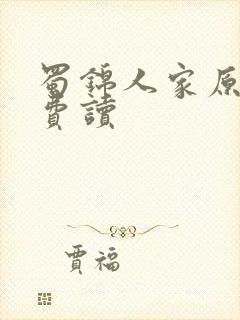 蜀錦人家原
費讀
賈福